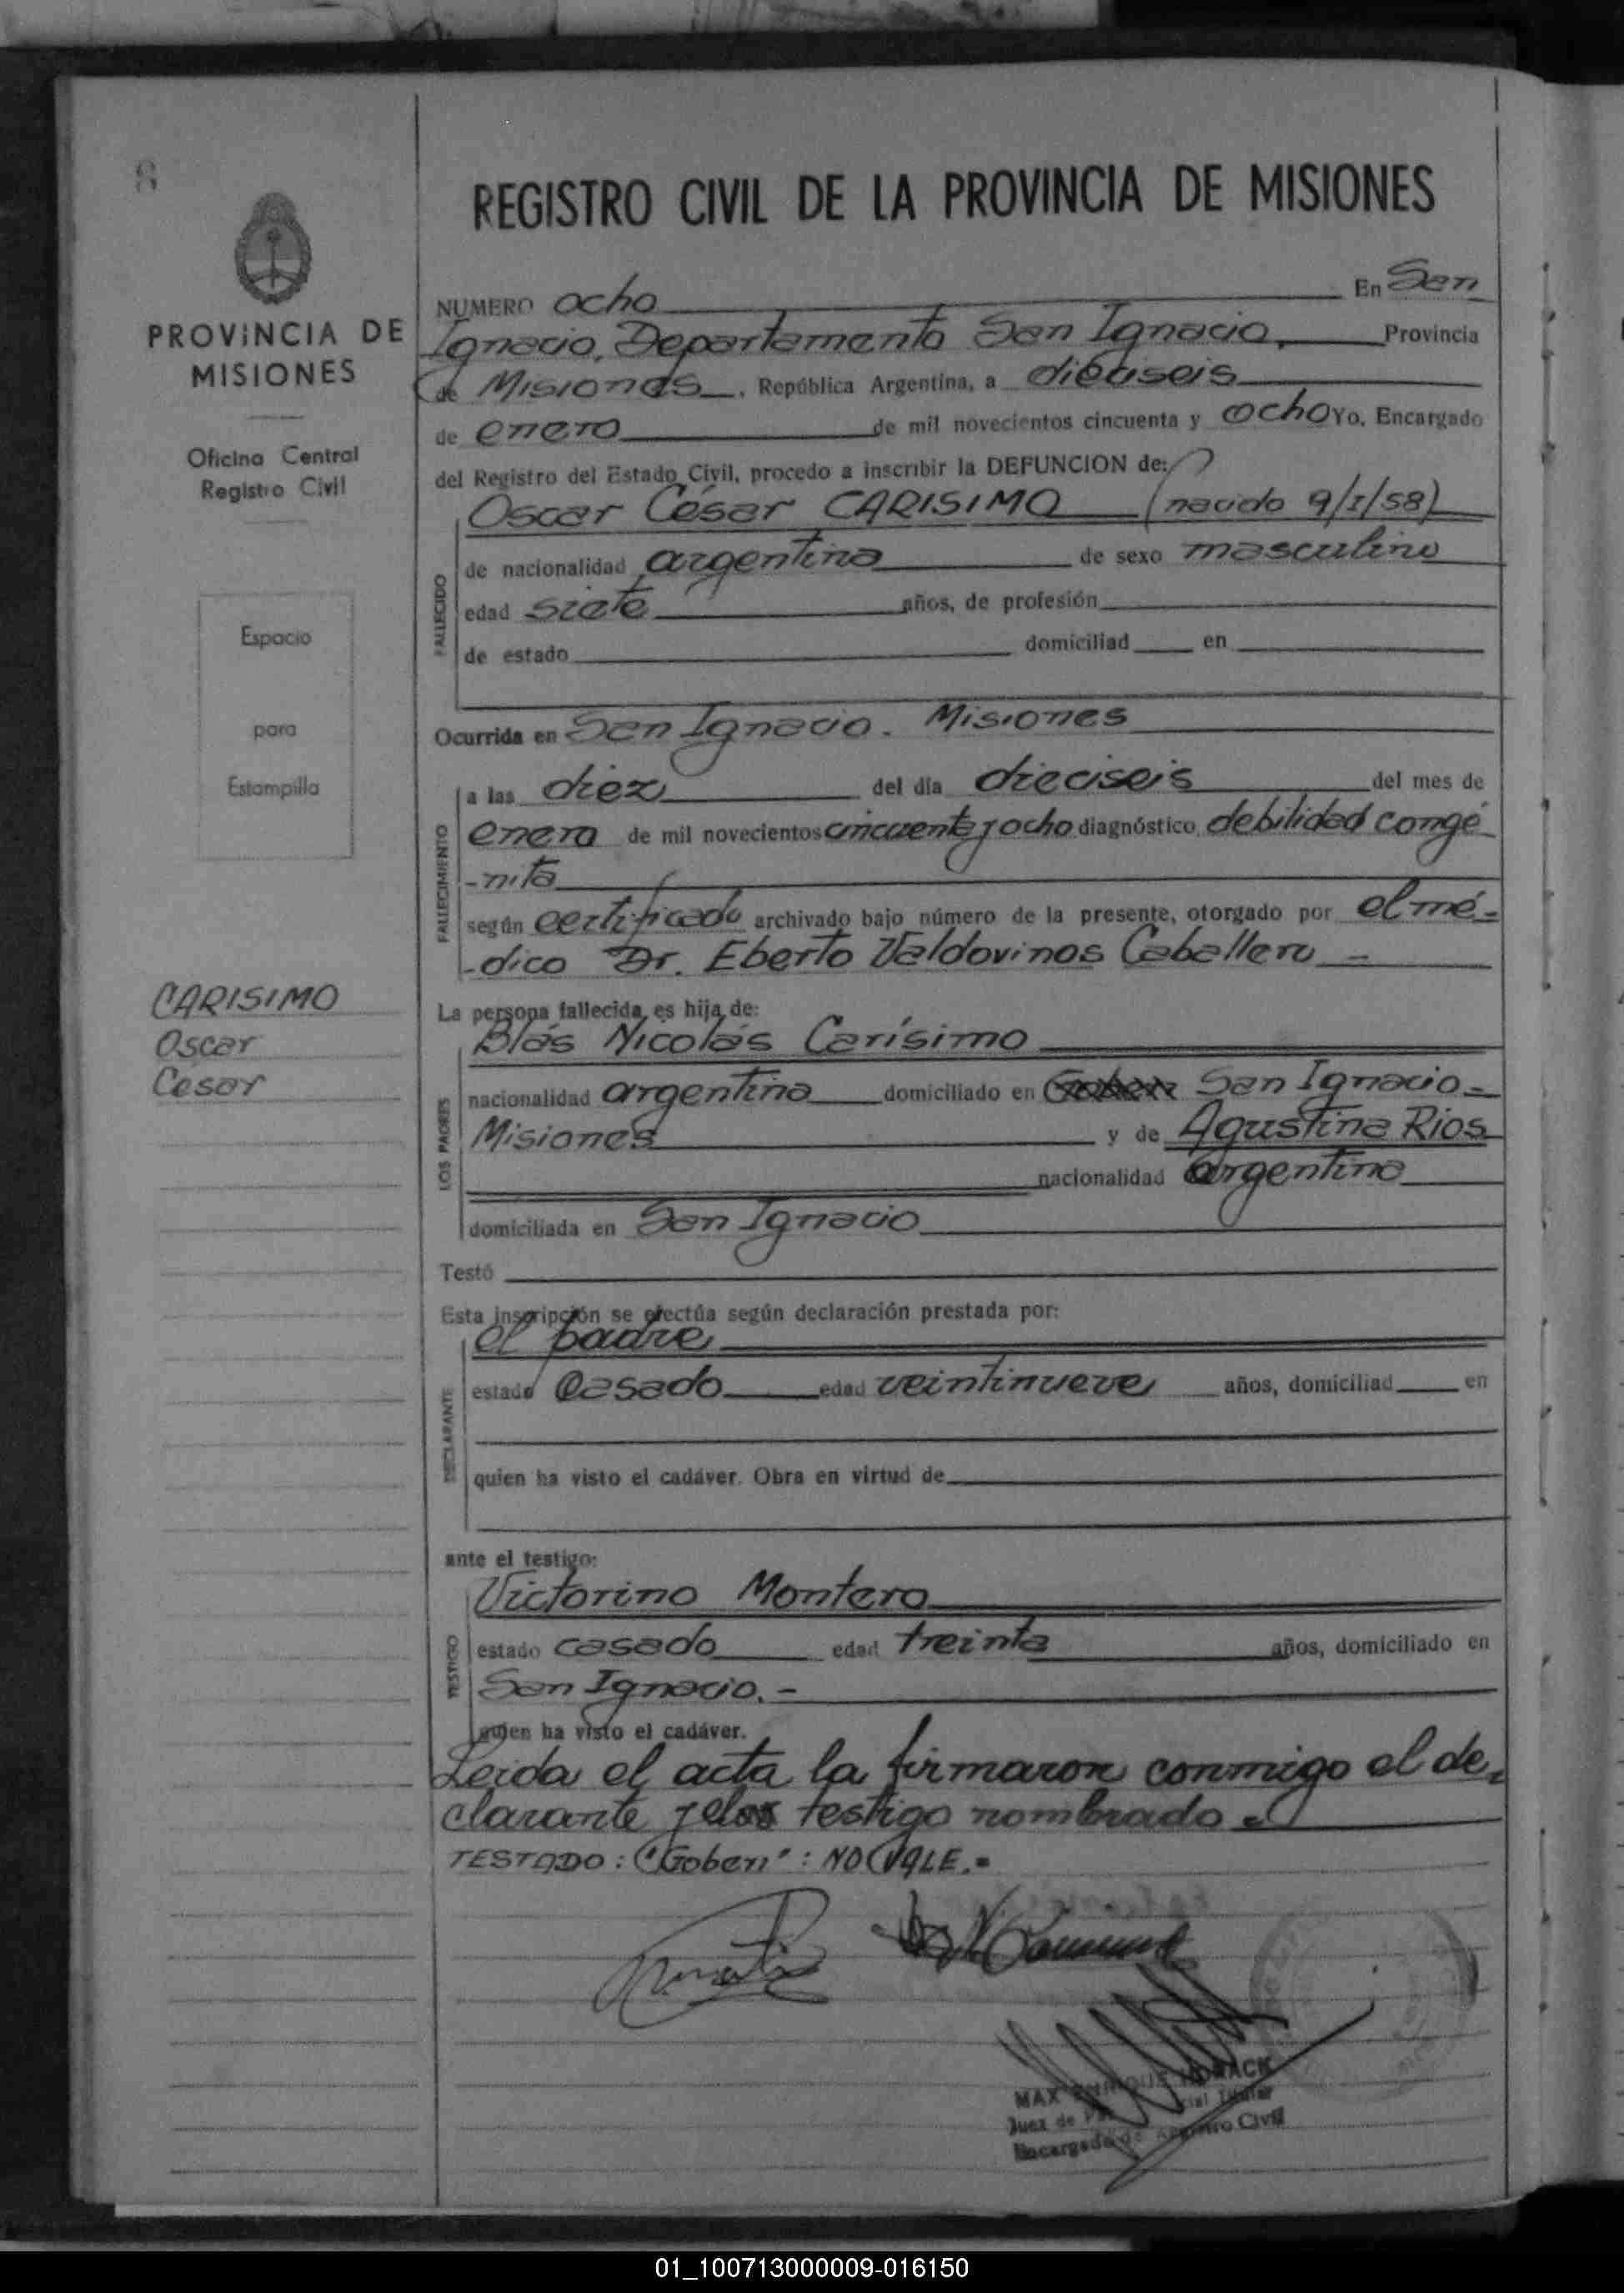 8
PROVINCIA DE
MISIONES
Oficina Central
Registro Civil
Espacio
para
Estampilla
CARISIMO
Oscar
César
REGISTRO CIVIL DE LA PROVINCIA DE MISIONES
NUMERO ocho En San
Ignacio, Departamento San Ignacio, Provincia
de Misiones, República Argentina, a dieciseis
de enero de mil novecientos cincuenta y ocho Yo, Encargado
del Registro del Estado Civil, procedo a inscribir la DEFUNCION de:
Oscar César CARISIMO (nacido 9/I/58)
FALLECIDO
de nacionalidad argentina de sexo masculino
edad siete años, de profesión
de estado domiciliad en
Ocurrida en San Ignacio. Misiones
FALLECIMIENTO
a las diez del día dieciseis del mes de
enero de mil novecientos cincuenta y ocho diagnóstico debilidad congé
-nita
según certificado archivado bajo número de la presente, otorgado por el mé-
-dico Dr. Eberto Valdovinos Caballero -
La persona fallecida es hija de:
LOS PADRES
Blás Nicolás Carísimo
nacionalidad argentina domiciliado en Goben San Ignacio-
Misiones y de Agustina Rios
nacionalidad argentina
domiciliada en San Ignacio
Testó
Esta inscripción se efectúa según declaración prestada por:
DECLARANTE
el padre
estado casado edad veintinueve años, domiciliad en
quien ha visto el cadáver. Obra en virtud de
ante el testigo:
TESTIGO
Victorino Montero
estado casado edad treinta años, domiciliado en
San Ignacio.-
quien ha visto el cadáver.
Leida el acta la firmaron conmigo el de-
clarante y el testigo nombrado.-
TESTADO: "Goben": NO VALE.=
MAX ENRIQUE
Juez de
Encargado de Registro Civil
01_100713000009-016150